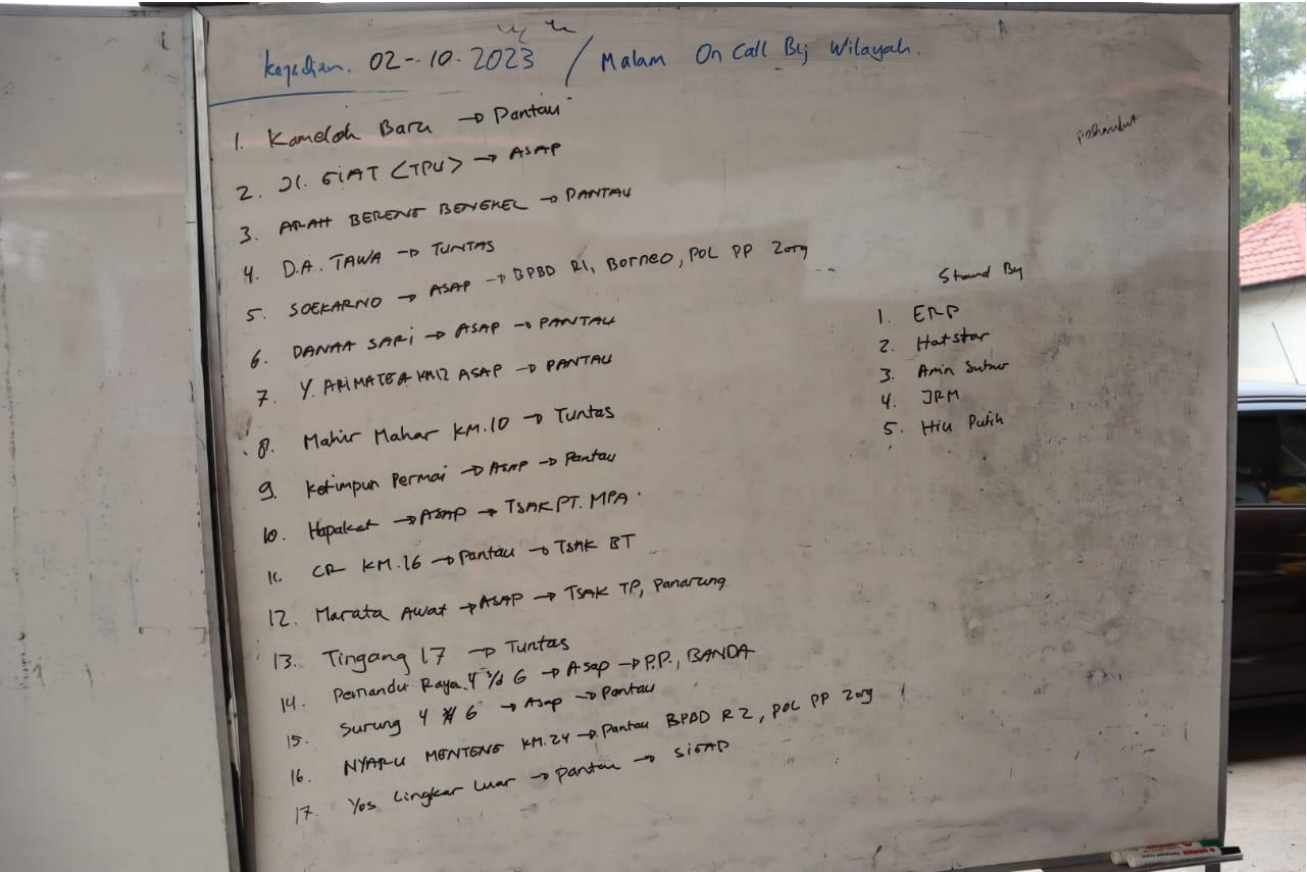 Kejadian. 02-10.2023 / Malam On Call Blj Wilayah.
1. Kameloh Baru → Pantau
2. Jl. GIAT <TPU> → ASAP
3. ARAH BERENG BENGKEL → PANTAU
4. D.A. TAWA → TUNTAS
5. SOEKARNO → ASAP → BPBD R1, Borneo, POL PP 2org
6. DANAA SARI → ASAP → PANTAU
7. Y. ARIMATEA KM12 ASAP → PANTAU
8. Mahir Mahar KM.10 → Tuntas
9. Ketimpun Permai → ASAP → Pantau
10. Hapakat → ASAP → TSAK PT. MPA
11. CR KM.16 → Pantau → TSAK BT
12. Marata Awat → ASAP → TSAK TP, Panarung
13. Tingang 17 → Tuntas
14. Pemandu Raya 4 s/d 6 → Asap → P.P., BANDA
15. Surung 4 # 6 → Asap → Pantau
16. NYARU MENTENG KM.24 → Pantau BPBD R2, POL PP 2org
17. Yos Lingkar Luar → Pantau → SIGAP
pahandut
Stand By
1. ERP
2. Hatstar
3. Amin Subur
4. JRM
5. Hiu Putih